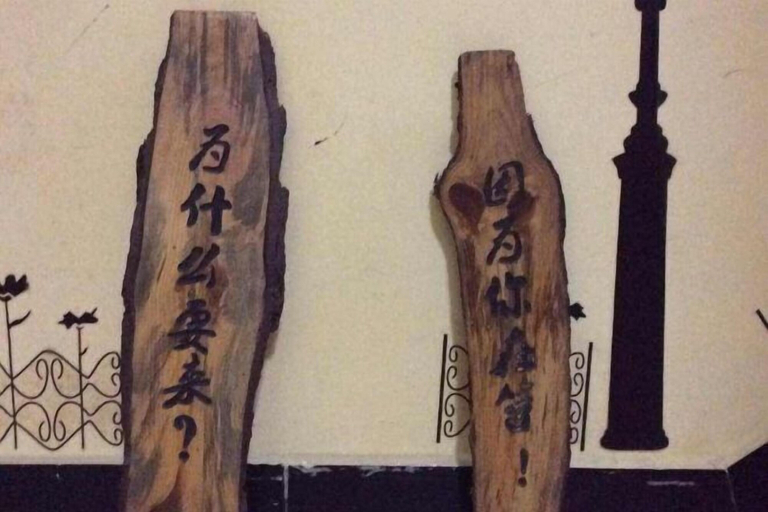 为什么要来?
因为你在!